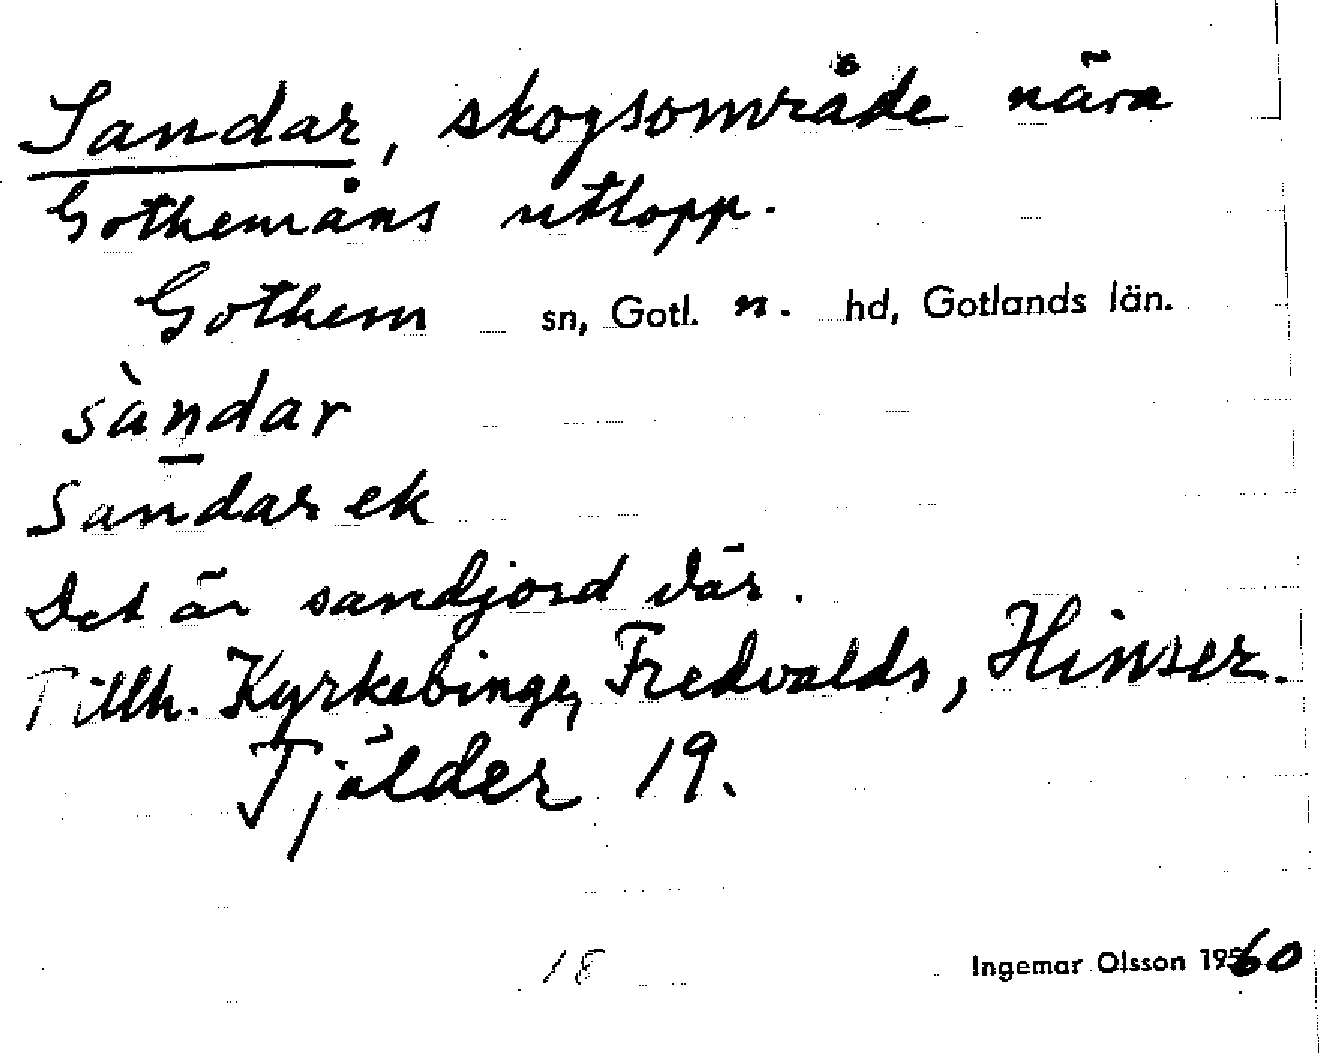 Sandar, skogsområde nära
Gothemåns utlopp.
Gothem sn, Gotl. n. hd, Gotlands län.
sàndar
Sandar ek
Det är sandjord där.
Tillh. Kyrkebinge, Fredvalds, Hinser.
Tjälder 19.
18
Ingemar Olsson 1960